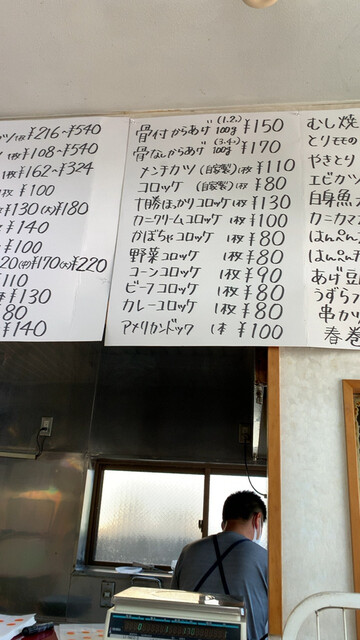 カツ1枚¥216~¥540
1枚¥108~¥540
1枚¥162~¥324
¥100
¥130(大)¥180
¥140
¥100
20(中)¥170(大)¥220
110
¥130
80
¥140
骨付からあげ(1.2.)100g ¥150
骨なしからあげ(3.4.)100g ¥170
メンチカツ(自家製)1枚¥110
コロッケ(自家製)1枚¥80
十勝ほっかりコロッケ1枚¥130
カニクリームコロッケ1枚¥100
かぼちゃコロッケ1枚¥80
野菜コロッケ1枚¥80
コーンコロッケ1枚¥90
ビーフコロッケ1枚¥80
カレーコロッケ1枚¥80
アメリカンドック1本¥100
むし焼
とりモモの
やきとり
エビカツ
白身魚
カニカマ
はんぺん
はんぺん
あげ豆
うずら
串カツ
春巻